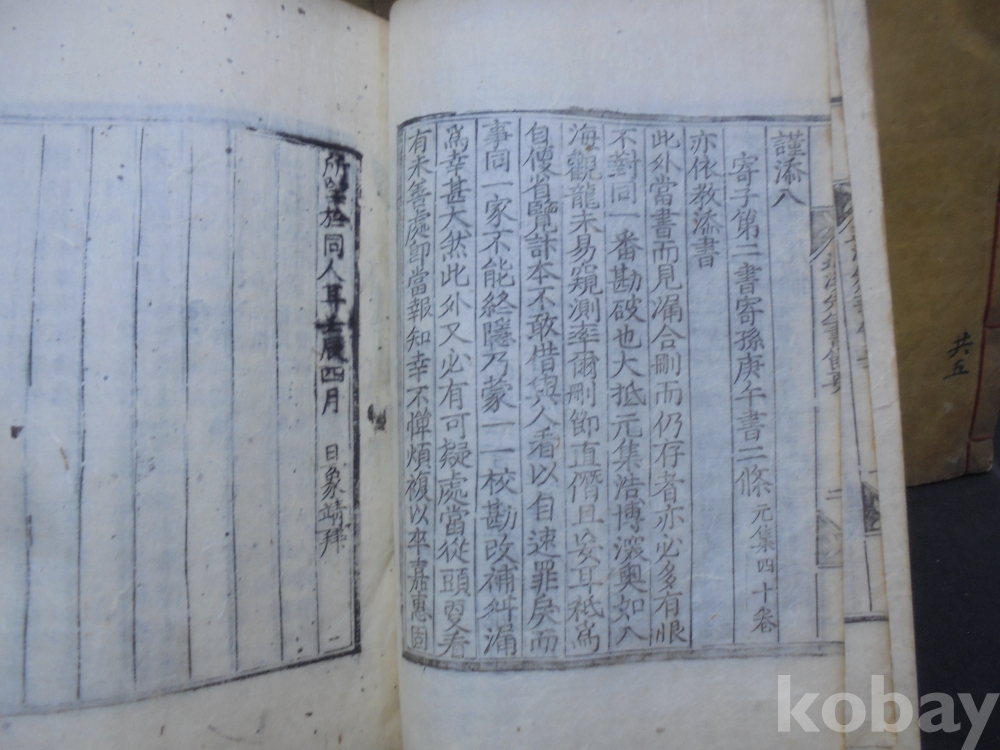 謹添八
寄子第二書寄孫庚午書二條 元集四十卷
亦依教添書
此外當書而見漏合刪而仍存者亦必多有恨
不對同一番勘破也大抵元集浩博深奥如入
海觀龍未易窺測率爾刪節直僭且妄耳秪爲
自便省覽計本不敢借與人看以自速罪戾而
事同一家不能終隱乃蒙一一校勘改補糾漏
爲幸甚大然此外又必有可疑處當從頭更看
有未善處卽當報知幸不憚煩複以卒嘉惠固
所望於同人耳壬辰四月 日象靖拜
共五
kobay